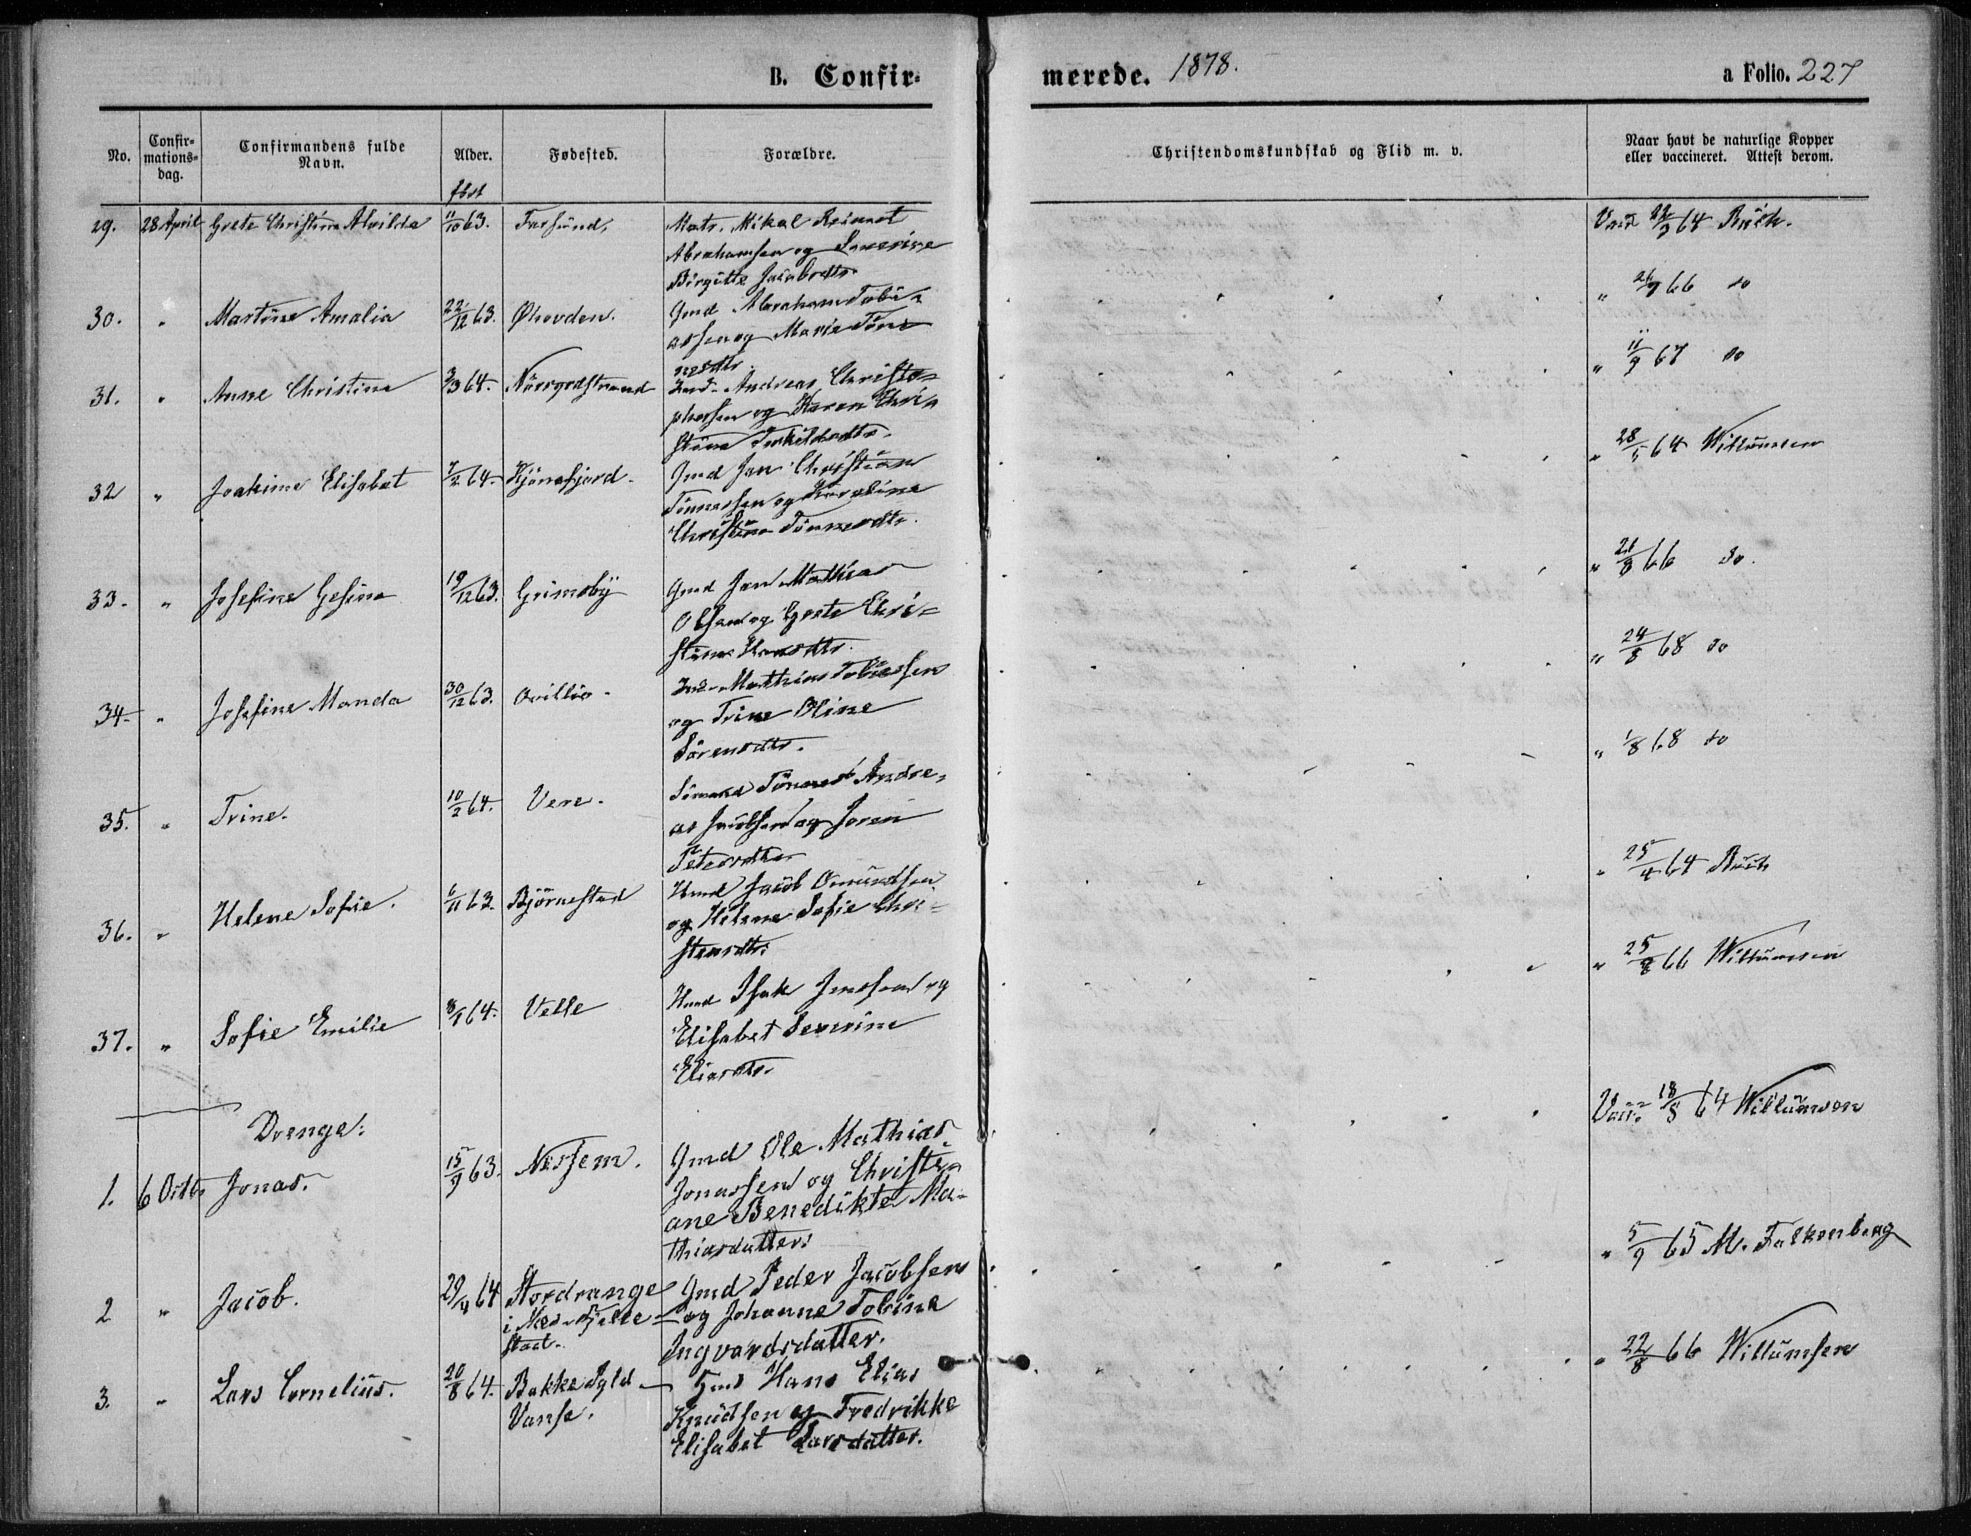 B. Confir-
merede. 1878.
a Folio. 227
No.
Confir-
mations-
dag.
Confirmandens fulde
Navn.
Alder.
Fødested.
Forældre.
Christendomskundskab og Flid m. v.
Naar havt de naturlige Kopper
eller vaccineret. Attest derom.
fdst
29. 28 April Grete Christine Alvilda 11/10 63. Farsund. Matr. Mikal Reinert
Abrahamsen og Severine
Birgitte Jacobsdtr.
Vacc 64 Buch.
30. " Martine Amalia 22/12 63. Øhovden. Gmd Abraham Tobi-
assen og Marie Tøn-
nesdtr
" 26/9 66 do
31. " Anne Christine 3/3 64. Nörregrdstrand Ind. Andreas Christo-
phersen og Karen Chri-
stine Terkildsdtr.
" 11/9 67 do
32 " Joakime Elisabet 7/2 64. Kjønefjord. Gmd Jan Christian
Tönnessen og Karoline
Christine Tönnesdtr.
" 28/5 64 Willumsen
33. " Josefine Gesine 19/12 63. Grimsby Gmd Jan Mathias
Olsen og Grete Chri-
stine Hansdtr.
" 21/8 66 do.
34. " Josefine Manda 30/12 63. Ind. Mathias Tobiassen
og Trine Oline
Sörensdtr.
" 24/8 68 do
35. " Trine. 10/2 64. Vere. Sömand Tönnes Andre-
as Jacobsen og Joren
Petersdtr.
" 1/8 68 do
36. " Helene Sofie. 6/11 63. Björnestad Hmd Jacob Omundsen
og Helene Sofie Chri-
stensdtr.
" 25/4 64 Buch
37. " Sofie Emilie 8/1 64. Velle Hmd Isak Jensen og
Elisabet Severine
Eliasdtr.
" 25/8 66 Willumsen
Drenge:
1. 6 Octbr Jonas. 15/9 63. Nessem. Gmd Ole Mathias
Jonassen og Christi-
ane Benedikte Ma-
thiasdatter
Vacc. 18/8 64 Willumsen
2 " Jacob. 29/4 64 Nordrange
i Næs-Fjelle-
stad.
Gmd Peder Jacobsen
og Johanne Tobine
Ingvardsdatter.
" 5/9 65 M. Falkenberg
3. " Lars Cornelius. 20/8 64. Bakke Syld
Vanse.
Hans Elias
Knudsen og Fredrikke
Elisabet Larsdatter.
" 22/8 66 Willumsen